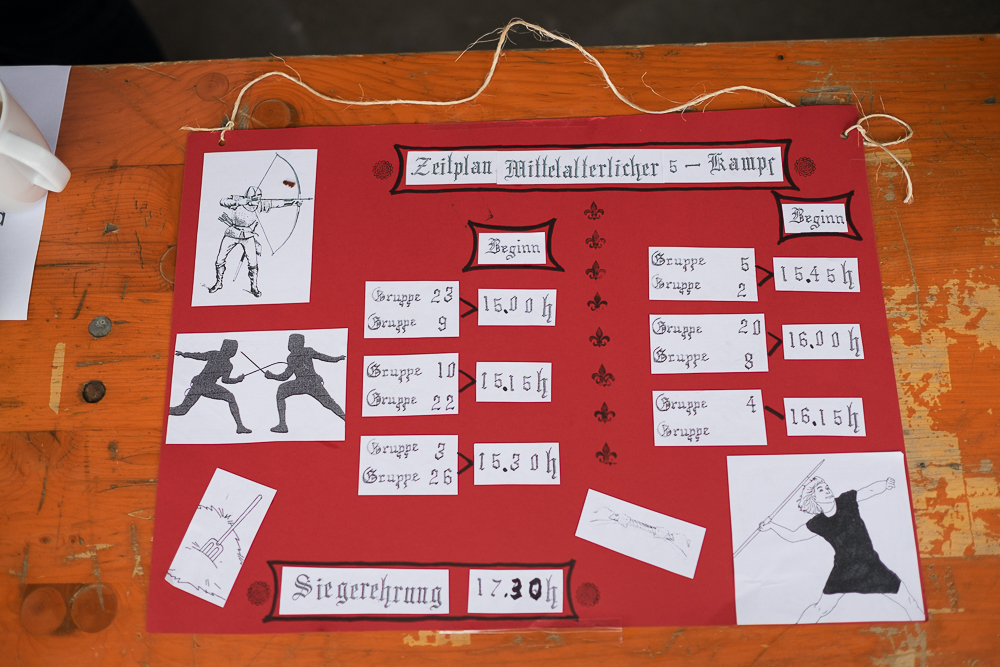 Zeitplan Mittelalterlicher 5 - Kampf
Beginn
Gruppe 23
Gruppe 9
15.00h
Gruppe 10
Gruppe 22
15.15h
Gruppe 3
Gruppe 26
15.30h
Beginn
Gruppe 5
Gruppe 2
15.45h
Gruppe 20
Gruppe 8
16.00h
Gruppe 4
Gruppe
16.15h
Siegerehrung 17.30h